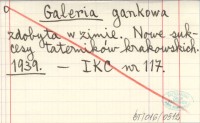 Galeria gankowa
zdobyta w zimie. Nowe suk-
cesy taterników krakowskich.
1939. — IKC nr 117.
BT/016/0516